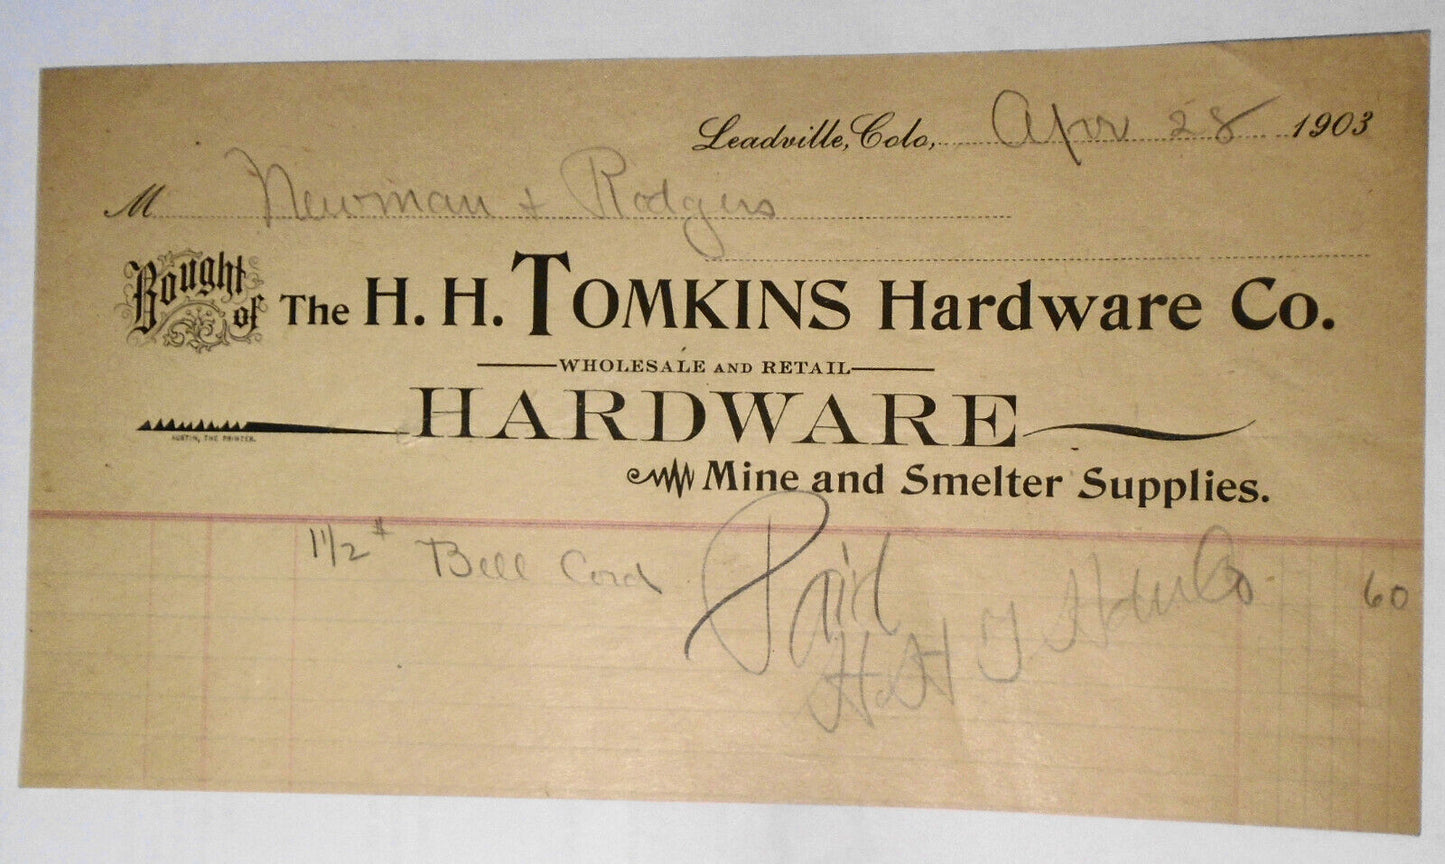 Leadville, Colo, Apr 28 1903
M Newman + Rodgers
Bought of The H. H. TOMKINS Hardware Co.
WHOLESALE AND RETAIL
HARDWARE
AUSTIN, THE PRINTER.
Mine and Smelter Supplies.
1 1/2 # Bell Cord 60
Paid
H H T Hdw Co